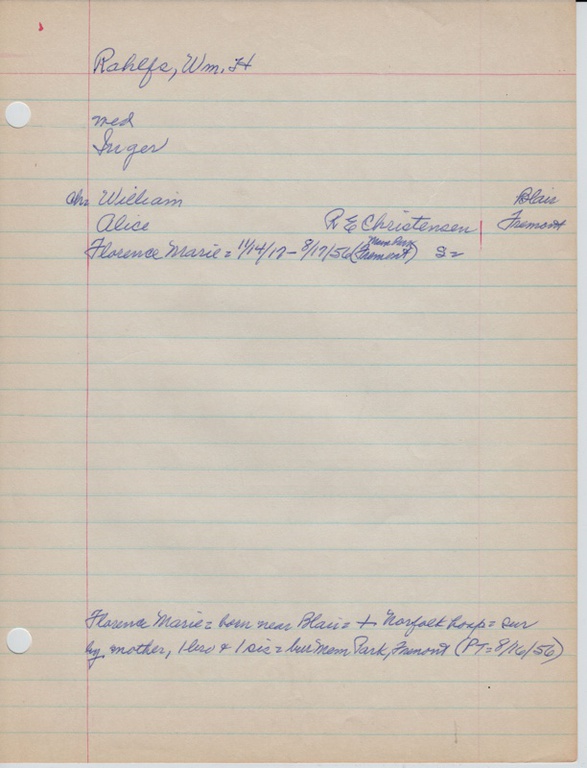 Rahlfs, Wm. H
med
Inger
chn William Blair
Alice R E Christensen Fremont
Florence Marie = 11/14/17 - 8/17/56 (Mem Park Fremont)
Florence Marie = born near Blair = + Norfolk hosp = sur
by mother, 1 bro & 1 sis = bur Mem Park, Fremont (PT = 8/16/56)